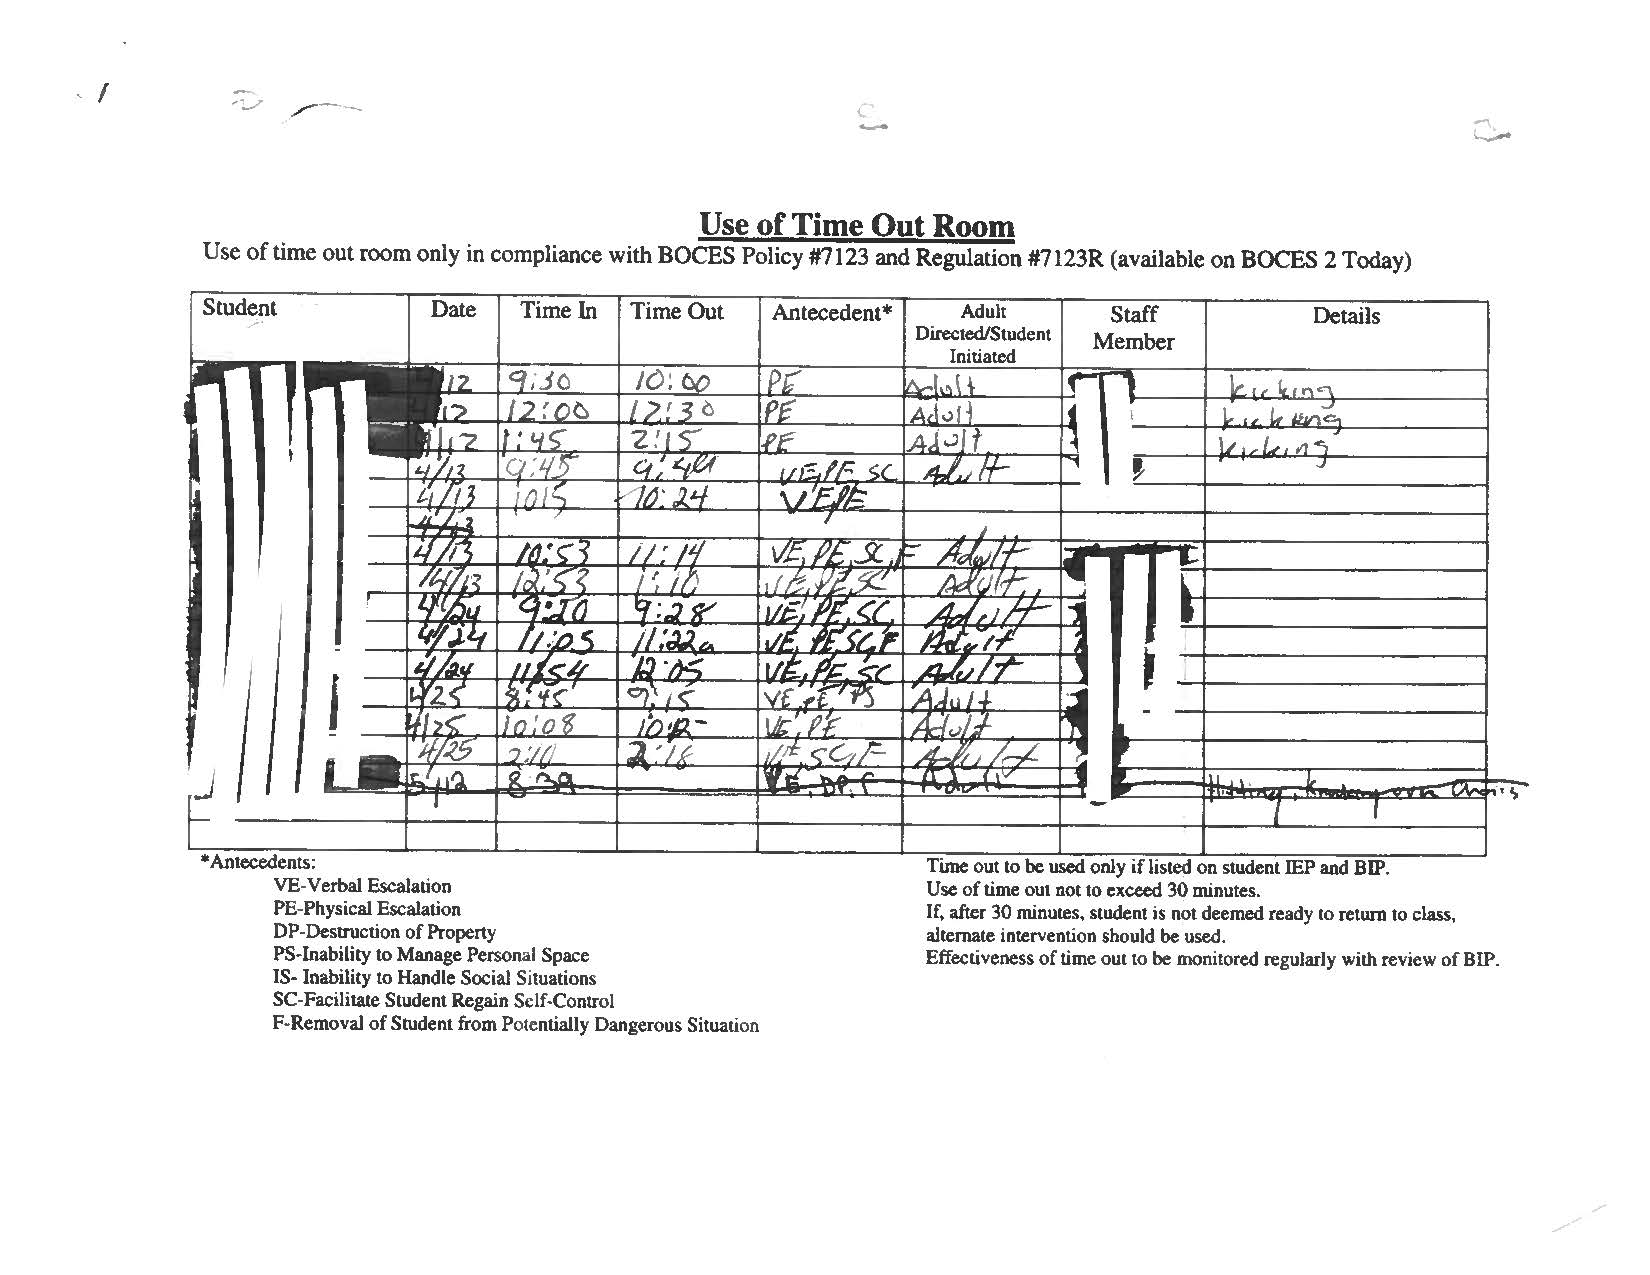 Use of Time Out Room
Use of time out room only in compliance with BOCES Policy #7123 and Regulation #7123R (available on BOCES 2 Today)
Student Date Time In Time Out Antecedent* Adult Directed/Student Initiated Staff Member Details
4/12 9:30 10:00 PE Adult kicking
4/12 12:00 12:30 PE Adult kicking
4/12 1:45 2:15 PE Adult kicking
4/13 9:45 VE,PE, SC Adult
4/13 1015 10:24 VE,PE
4/13
4/13 10:53 11:14 VE, PE, SC, F Adult
4/13 12:53 1:10 VE, PE, SC Adult
4/24 9:20 9:28 VE, PE, SC, Adult
4/24 11:05 11:22a VE, PE SC, F Adult
4/24 11:54 12:05 VE, PE, SC Adult
4/25 8:45 9:15 VE, PE, PS Adult
4/25 10:08 VE, PE Adult
4/25 2:10 2:18 VE, SC, F Adult
5/12 8:39 VE, DP, F Adult Hitting, over Chairs
*Antecedents:
VE-Verbal Escalation
PE-Physical Escalation
DP-Destruction of Property
PS-Inability to Manage Personal Space
IS- Inability to Handle Social Situations
SC-Facilitate Student Regain Self-Control
F-Removal of Student from Potentially Dangerous Situation
Time out to be used only if listed on student IEP and BIP.
Use of time out not to exceed 30 minutes.
If, after 30 minutes, student is not deemed ready to return to class,
alternate intervention should be used.
Effectiveness of time out to be monitored regularly with review of BIP.